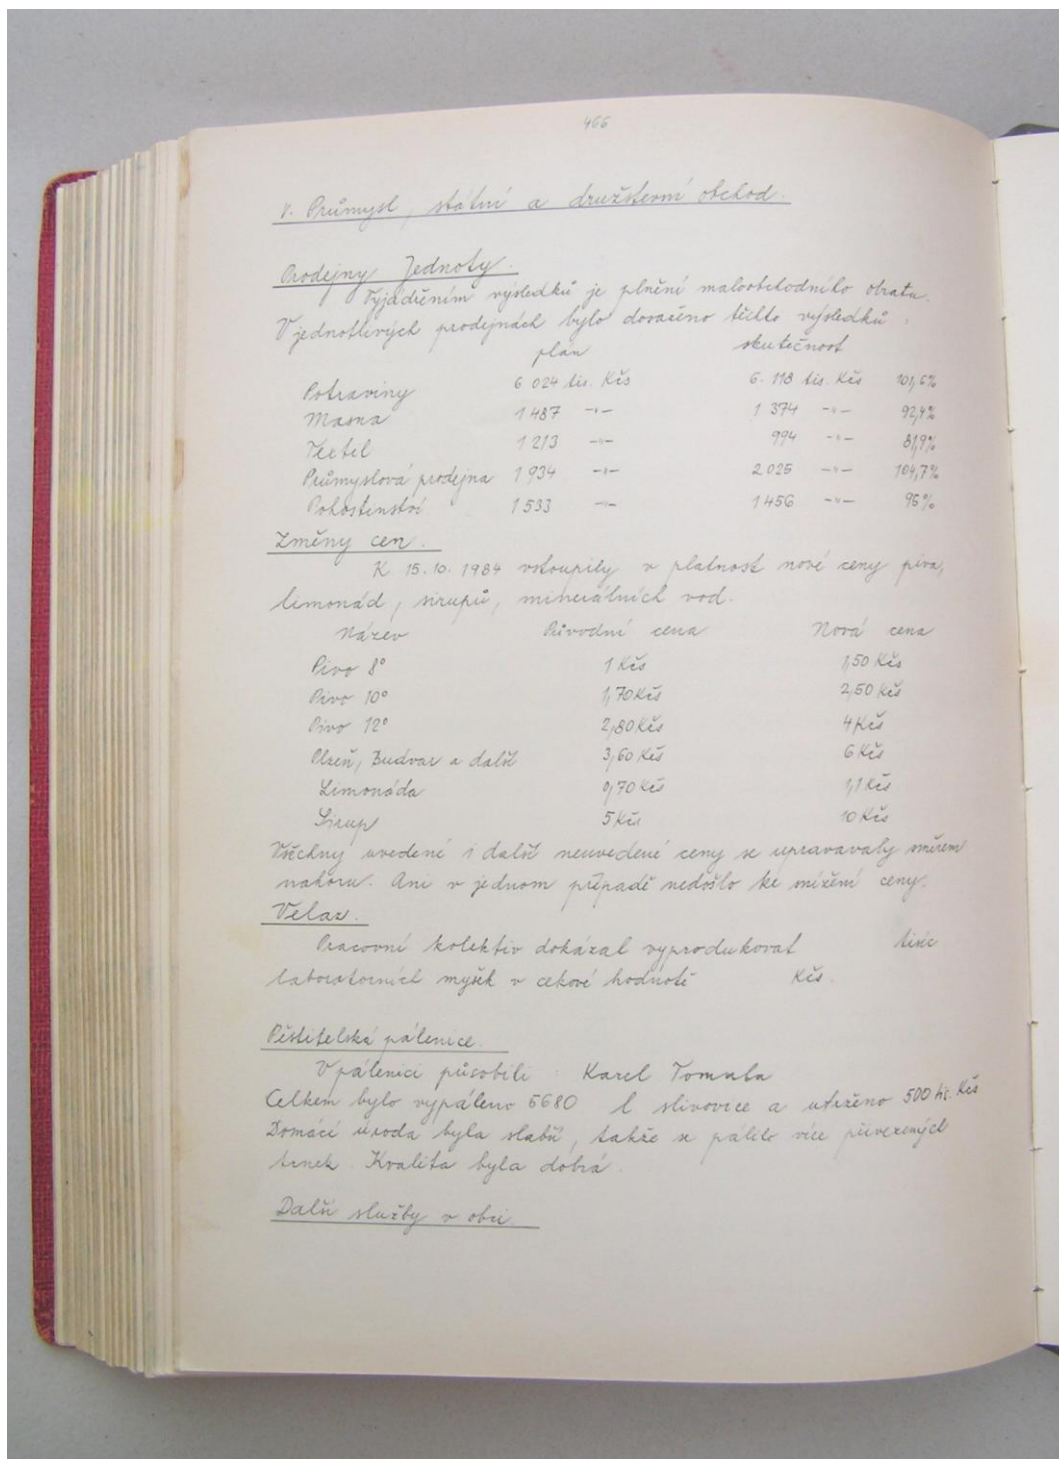 466
V. Průmysl, státní a družstevní obchod.
Prodejny Jednoty.
Vyjádřením výsledků je plnění maloobchodního obratu.
V jednotlivých prodejnách bylo dosaženo těchto výsledků:
plán skutečnost
Potraviny 6 024 tis. Kčs 6.118 tis. Kčs 101,6%
Masna 1 487 -"- 1 374 -"- 92,4%
Textil 1 213 -"- 994 -"- 81,9%
Průmyslová prodejna 1 934 -"- 2 025 -"- 104,7%
Pohostinství 1 533 -"- 1 456 -"- 95%
Změny cen.
K 15.10.1984 vstoupily v platnost nové ceny piva,
limonád, sirupů, minerálních vod.
Název Původní cena Nová cena
Pivo 8° 1 Kčs 1,50 Kčs
Pivo 10° 1,70 Kčs 2,50 Kčs
Pivo 12° 2,80 Kčs 4 Kčs
Plzeň, Budvar a další 3,60 Kčs 6 Kčs
Limonáda 0,70 Kčs 1,1 Kčs
Sirup 5 Kčs 10 Kčs
Všechny uvedené i další neuvedené ceny se upravovaly směrem
nahoru. Ani v jednom případě nedošlo ke snížení ceny.
Velaz.
Pracovní kolektiv dokázal vyprodukovat tisíc
laboratorních myšek v cekové hodnotě Kčs.
Pěstitelská pálenice.
V pálenici působili: Karel Tomala
Celkem bylo vypáleno 5680 l slivovice a utrženo 500 tis. Kčs
Domácí úroda byla slabší, takže se pálilo více přivezených
trnek. Kvalita byla dobrá.
Další služby v obci.